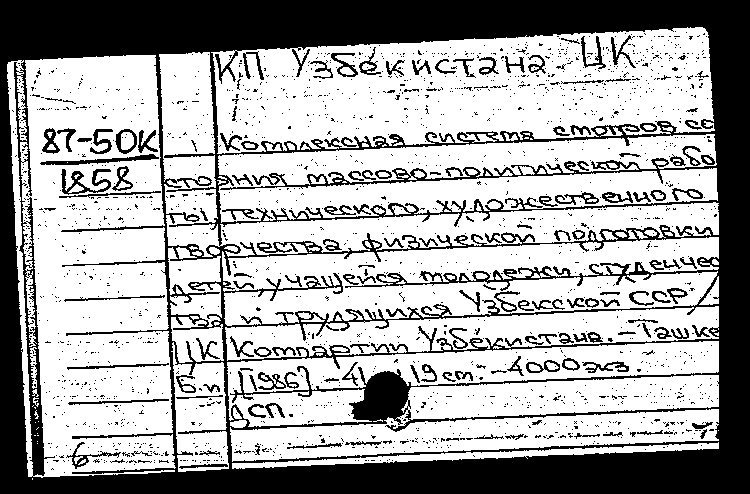 КП Узбекистана. ЦК
87-50К
1858
Комплексная система смотров со
стояния массово-политической рабо
ты, технического, художественного
творчества, физической подготовки
детей, учащейся молодежи, студенчес
тва и трудящихся Узбекской ССР /
ЦК Компартии Узбекистана. - Ташке
Б.и., [1986]. - 41 19 см. - 4000 экз.
ДСП.
6